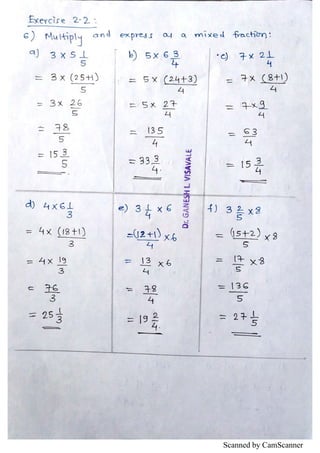 Exercise 2.2:
6) Multiply and express as a mixed fraction:
a) 3 x 5 1/5
= 3 x (25+1)/5
= 3 x 26/5
= 78/5
= 15 3/5
b) 5 x 6 3/4
= 5 x (24+3)/4
= 5 x 27/4
= 135/4
= 33 3/4.
c) 7 x 2 1/4
= 7 x (8+1)/4
= 7 x 9/4
= 63/4
= 15 3/4
Dr. GANESH L. VISAVALE
d) 4 x 6 1/3
= 4 x (18+1)/3
= 4 x 19/3
= 76/3
= 25 1/3
e) 3 1/4 x 6
= (12+1)/4 x 6
= 13/4 x 6
= 78/4
= 19 2/4.
f) 3 2/5 x 8
= (15+2)/5 x 8
= 17/5 x 8
= 136/5
= 27 1/5
Scanned by CamScanner